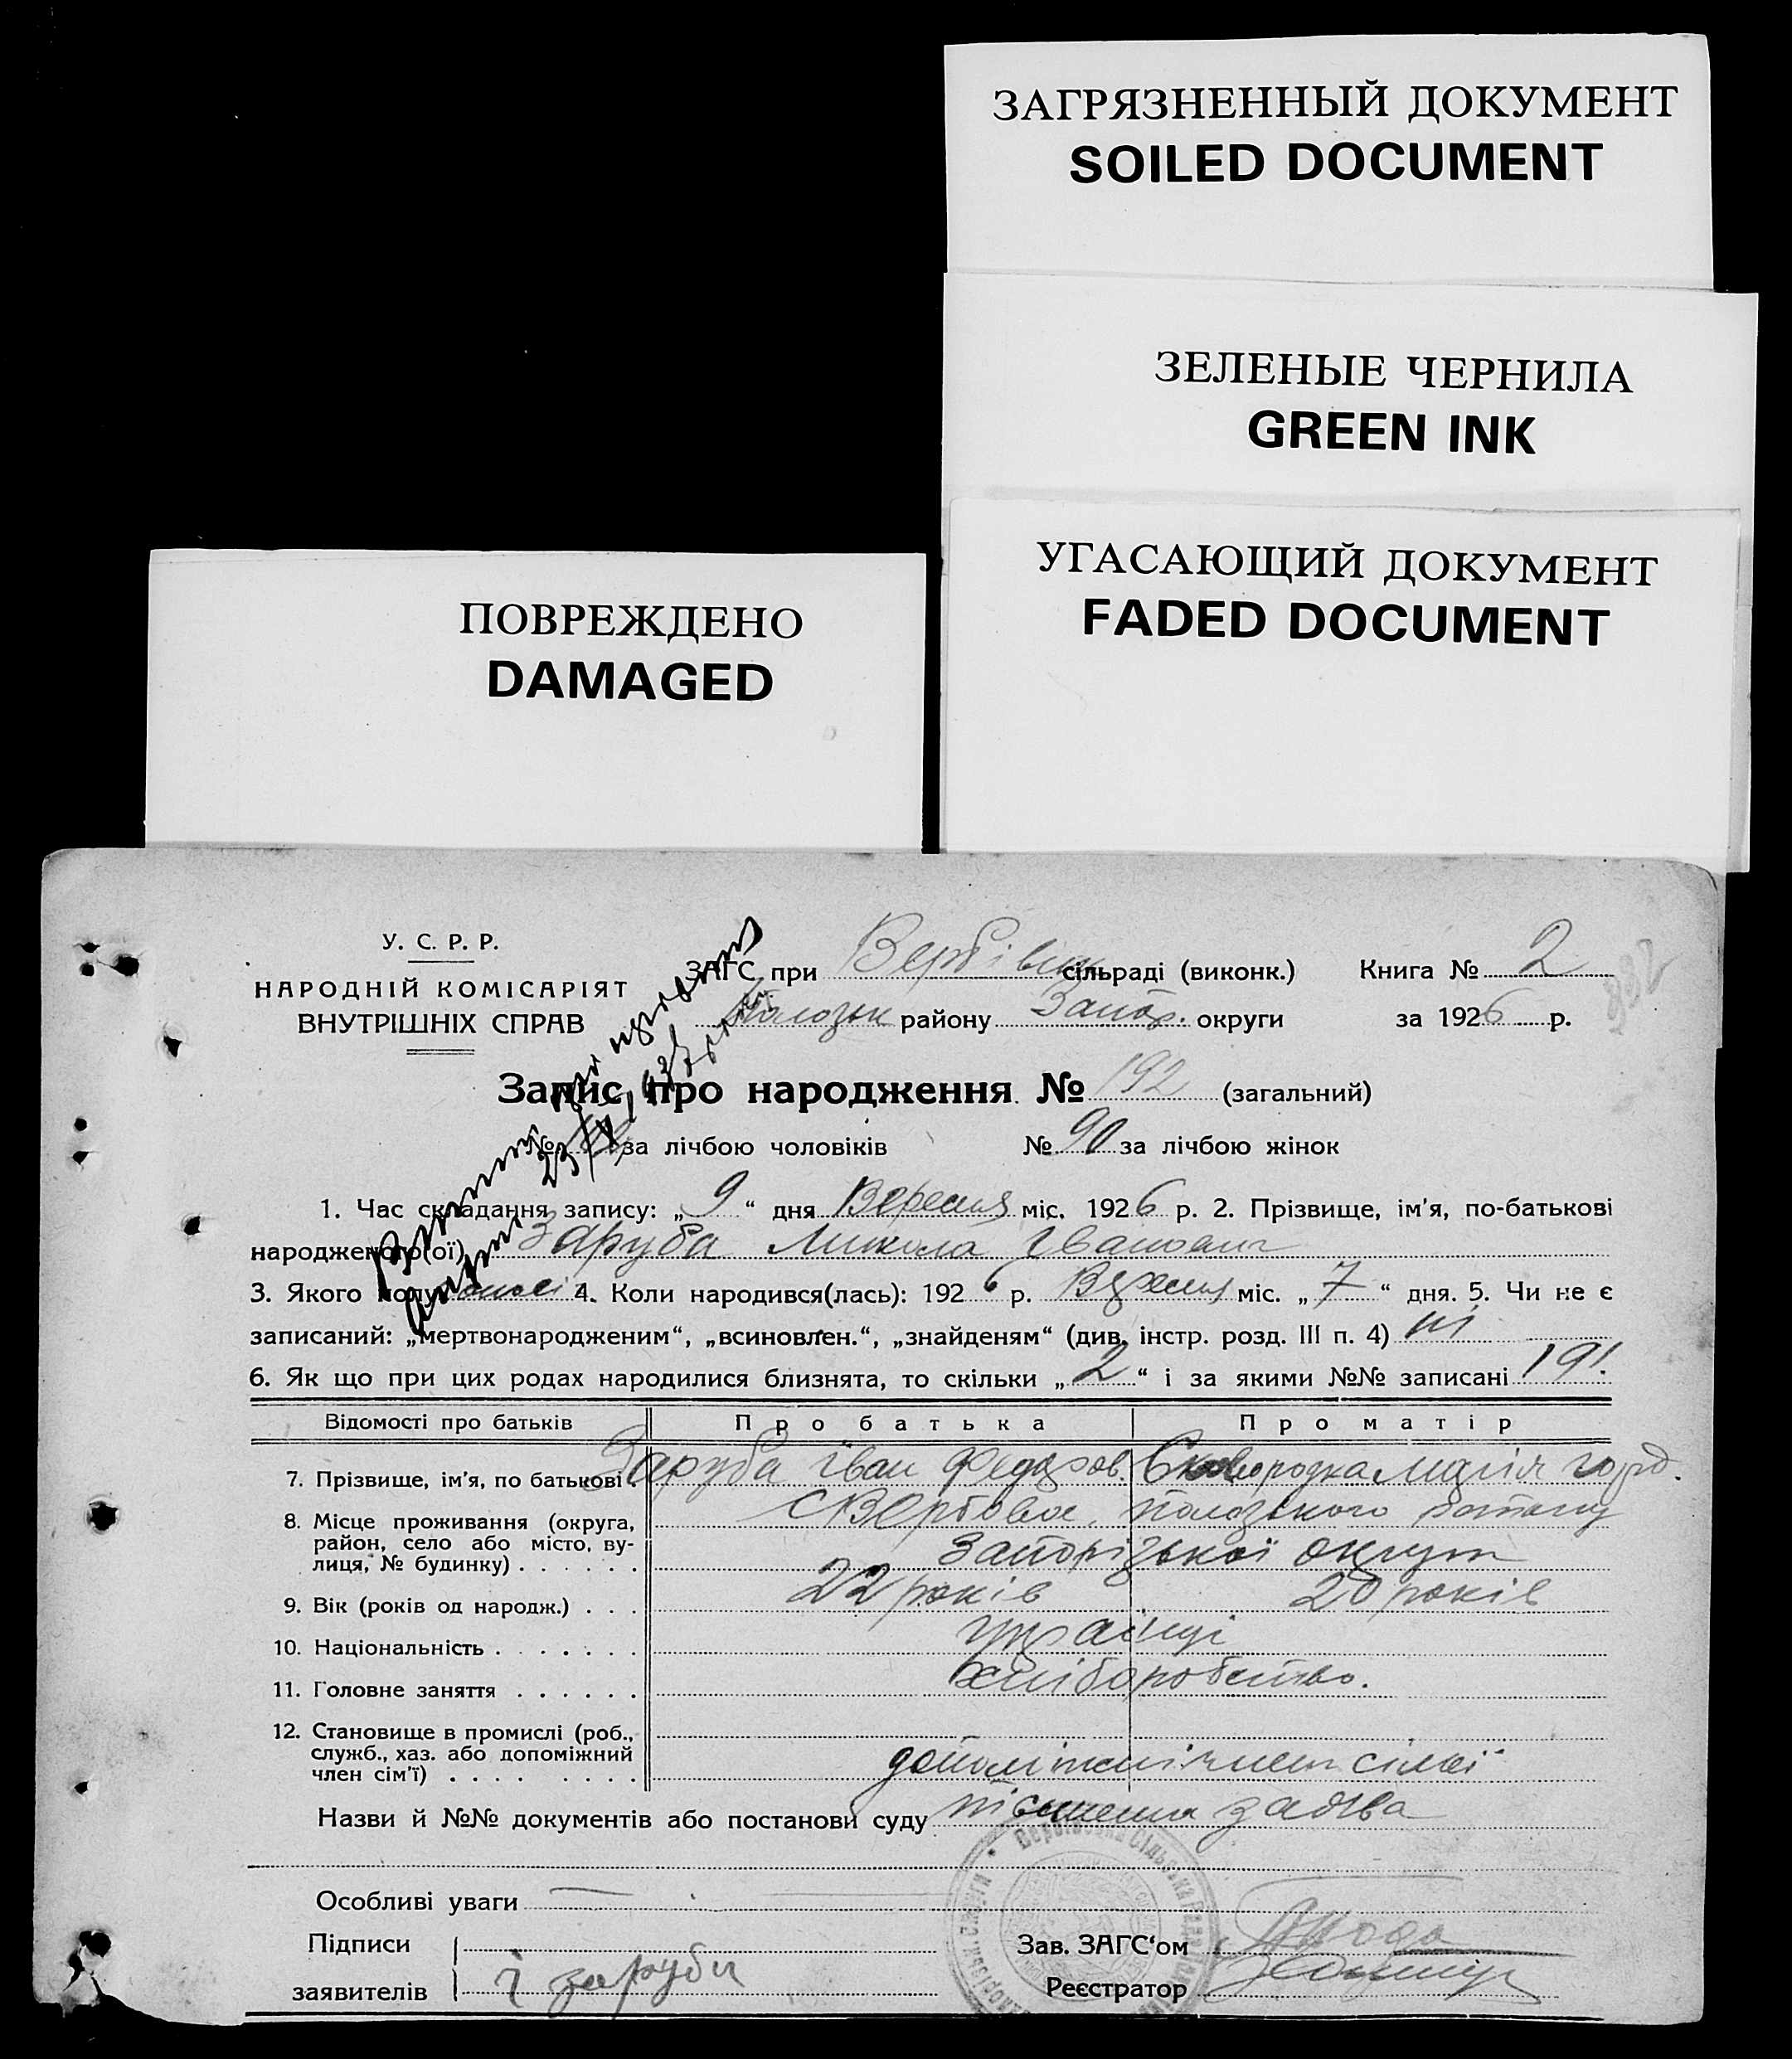 ЗАГРЯЗНЕННЫЙ ДОКУМЕНТ
SOILED DOCUMENT
ЗЕЛЕНЫЕ ЧЕРНИЛА
GREEN INK
УГАСАЮЩИЙ ДОКУМЕНТ
FADED DOCUMENT
ПОВРЕЖДЕНО
DAMAGED
У. С. Р. Р.
НАРОДНІЙ КОМІСАРІЯТ
ВНУТРІШНІХ СПРАВ
ЗАГС при Вербівськ сільраді (виконк.) Книга № 2
Пологськ району Запор. округи за 1926 р.
Запис про народження № 192 (загальний)
№ за лічбою чоловіків № 90 за лічбою жінок
1. Час складання запису: „ 9 “ дня Вересня міс. 1926 р. 2. Прізвище, ім'я, по-батькові
народженого(ої) Заруба Микола Іванович
3. Якого полу 4. Коли народився(лась): 1926 р. Вересня міс. „ 7 “ дня. 5. Чи не є
записаний: „мертвонародженим“, „всиновлен.“, „знайденям“ (див. інстр. розд. III п. 4) ні
6. Як що при цих родах народилися близнята, то скільки „ 2 “ і за якими №№ записані 191.
Відомості про батьків Про батька Про матір
7. Прізвище, ім'я, по батькові. Заруба Іван Федоров. Сковородка Марія Горд.
8. Місце проживання (округа, район, село або місто, вулиця, № будинку) . . . . . . с Вербове, Пологського району
Запорізької округи
9. Вік (років од народж.) . . . 22 років 20 років
10. Національність . . . . . . . українці
11. Головне заняття . . . . . . хліборобство.
12. Становище в промислі (роб., служб., хаз. або допоміжний член сім'ї) . . . . . . . . допоміжні член сімєї
Назви й №№ документів або постанови суду письмена заява
Особливі уваги
Підписи Зав. ЗАГС'ом
заявителів І Заруби Реєстратор